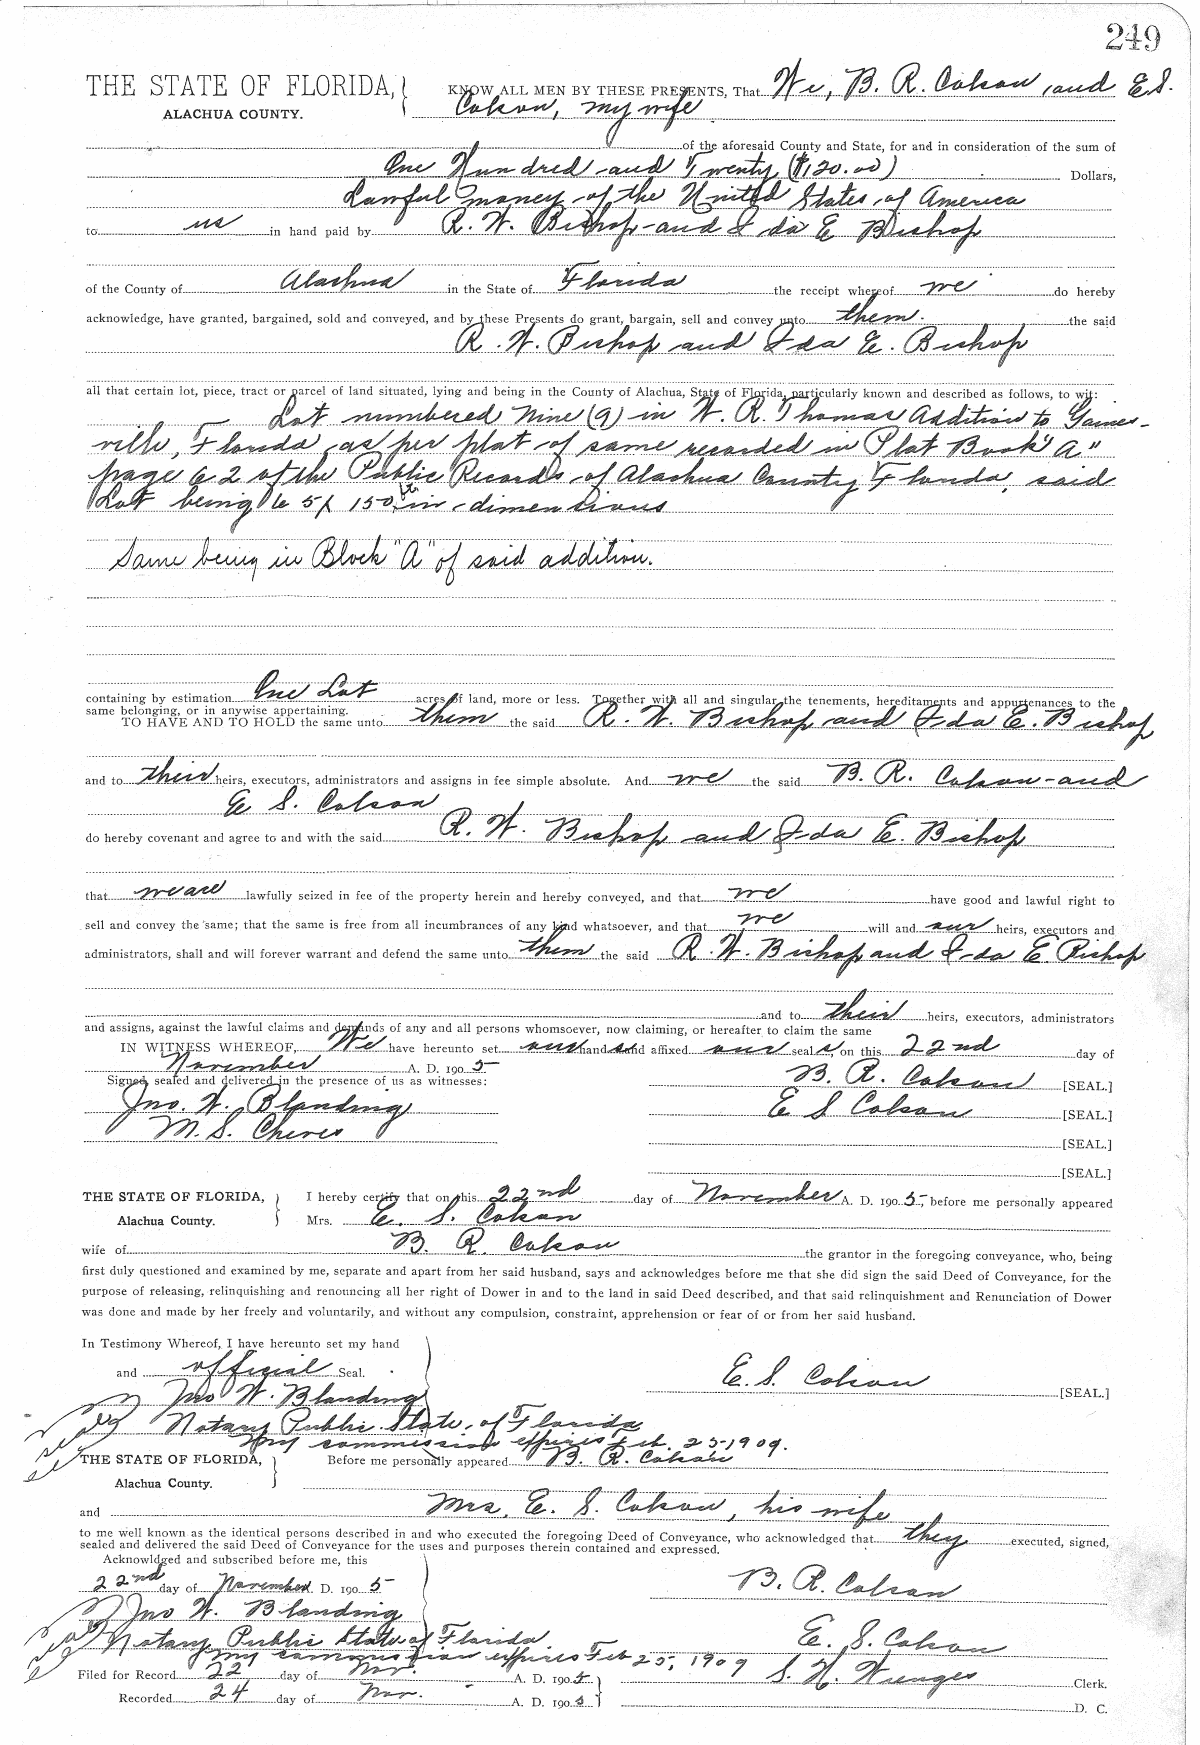 249
THE STATE OF FLORIDA, KNOW ALL MEN BY THESE PRESENTS, That We, B. R. Colson, and E S.
ALACHUA COUNTY. Colson, my wife
of the aforesaid County and State, for and in consideration of the sum of
One Hundred and Twenty ($120.00) Dollars,
Lawful money of the United States of America
to us in hand paid by R. W. Bishop and Ida E Bishop
of the County of Alachua in the State of Florida the receipt whereof we do hereby
acknowledge, have granted, bargained, sold and conveyed, and by these Presents do grant, bargain, sell and convey unto them. the said
R. W. Bishop and Ida E. Bishop
all that certain lot, piece, tract or parcel of land situated, lying and being in the County of Alachua, State of Florida, particularly known and described as follows, to wit:
Lot numbered Nine (9) in W. R. Thomas Addition to Gaines-
ville, Florida, as per plat of same recorded in Plat Book "A"
page 62 of the Public Records of Alachua County Florida, said
Lot being 150 ft. in dimensions
Same being in Block "A" of said addition.
containing by estimation One Lot acres of land, more or less. Together with all and singular the tenements, hereditaments and appurtenances to the
same belonging, or in anywise appertaining.
TO HAVE AND TO HOLD the same unto them the said R. W. Bishop and Ida E. Bishop
and to their heirs, executors, administrators and assigns in fee simple absolute. And we the said B. R. Colson and
E S. Colson
do hereby covenant and agree to and with the said R. W. Bishop and Ida E. Bishop
that we are lawfully seized in fee of the property herein and hereby conveyed, and that we have good and lawful right to
sell and convey the same; that the same is free from all incumbrances of any kind whatsoever, and that we will and our heirs, executors and
administrators, shall and will forever warrant and defend the same unto them the said R. W. Bishop and Ida E. Bishop
and to their heirs, executors, administrators
and assigns, against the lawful claims and demands of any and all persons whomsoever, now claiming, or hereafter to claim the same
IN WITNESS WHEREOF, We have hereunto set our hands and affixed our seals, on this 22nd day of
November A. D. 190 5
Signed, sealed and delivered in the presence of us as witnesses: B. R. Colson [SEAL.]
Jno. W. Blanding E S Colson [SEAL.]
M. S. Cheves [SEAL.]
[SEAL.]
THE STATE OF FLORIDA, I hereby certify that on this 22nd day of November A. D. 190 5, before me personally appeared
Alachua County. Mrs. E. S. Colson
wife of B. R. Colson the grantor in the foregoing conveyance, who, being
first duly questioned and examined by me, separate and apart from her said husband, says and acknowledges before me that she did sign the said Deed of Conveyance, for the
purpose of releasing, relinquishing and renouncing all her right of Dower in and to the land in said Deed described, and that said relinquishment and Renunciation of Dower
was done and made by her freely and voluntarily, and without any compulsion, constraint, apprehension or fear of or from her said husband.
In Testimony Whereof, I have hereunto set my hand
and official Seal. E. S. Colson [SEAL.]
Jno W. Blanding
seal Notary Public State of Florida
my commission expires Feb. 25-1909.
THE STATE OF FLORIDA, Before me personally appeared B. R. Colson
Alachua County.
and Mrs. E. S. Colson, his wife
to me well known as the identical persons described in and who executed the foregoing Deed of Conveyance, who acknowledged that they executed, signed,
sealed and delivered the said Deed of Conveyance for the uses and purposes therein contained and expressed.
Acknowldged and subscribed before me, this
22nd day of November A. D. 190 5 B. R. Colson
Jno W. Blanding
seal Notary Public State of Florida. E. S. Colson
my commission expires Feb 25, 1909
Filed for Record 22 day of Nov. A. D. 190 5 S. H. Wienges Clerk.
Recorded 24 day of Nov. A. D. 190 5 D. C.